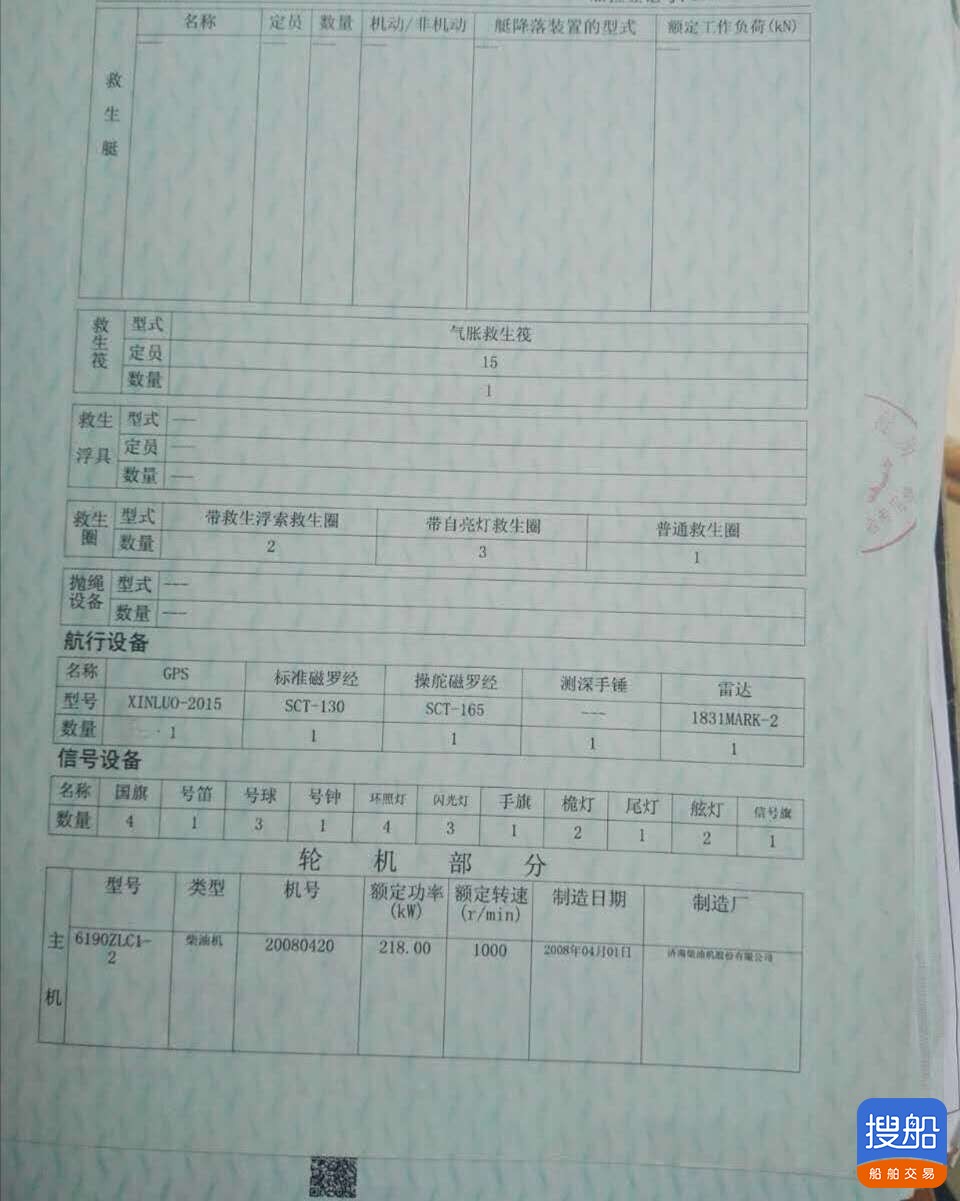 名称 定员 数量 机动/非机动 艇降落装置的型式 额定工作负荷(kN)
救生艇 — — — — — —
救生筏 型式 气胀救生筏
定员 15
数量 1
救生浮具 型式 ---
定员 ---
数量 ---
救生圈 型式 带救生浮索救生圈 带自亮灯救生圈 普通救生圈
数量 2 3 1
抛绳设备 型式 ---
数量 ---
航行设备
名称 GPS 标准磁罗经 操舵磁罗经 测深手锤 雷达
型号 XINLUO-2015 SCT-130 SCT-165 --- 1831MARK-2
数量 1 1 1 1 1
信号设备
名称 国旗 号笛 号球 号钟 环照灯 闪光灯 手旗 桅灯 尾灯 舷灯 信号旗
数量 4 1 3 1 4 3 1 2 1 2 1
轮机部分
型号 类型 机号 额定功率(kW) 额定转速(r/min) 制造日期 制造厂
主机 6190ZLC1-2 柴油机 20080420 218.00 1000 2008年04月01日 济南柴油机股份有限公司
搜船
船舶交易